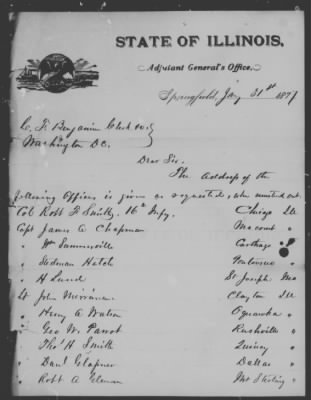 STATE OF ILLINOIS,
Adjutant General's Office,
Springfield, Jay 31st 1877
C. F. Benjamin Clerk
Washington D.C.
Dear Sir.
The Address of the
following Officers is given as requested, when mustered out.
Col Robt F Smith, 16th Infy. Chicago Ills
Capt James A Chapman Macomb "
" Wm Summerville Carthage "
" Stedman Hatch
" H Lund St Joseph Mo
Lt John Clayton Ills
" Henry A Watson Oquawka "
" Geo W. Parrot Rushville "
" Thos H Smith Quincy "
" Danl Glapner Dallas "
" Robt A Mt Sterling "